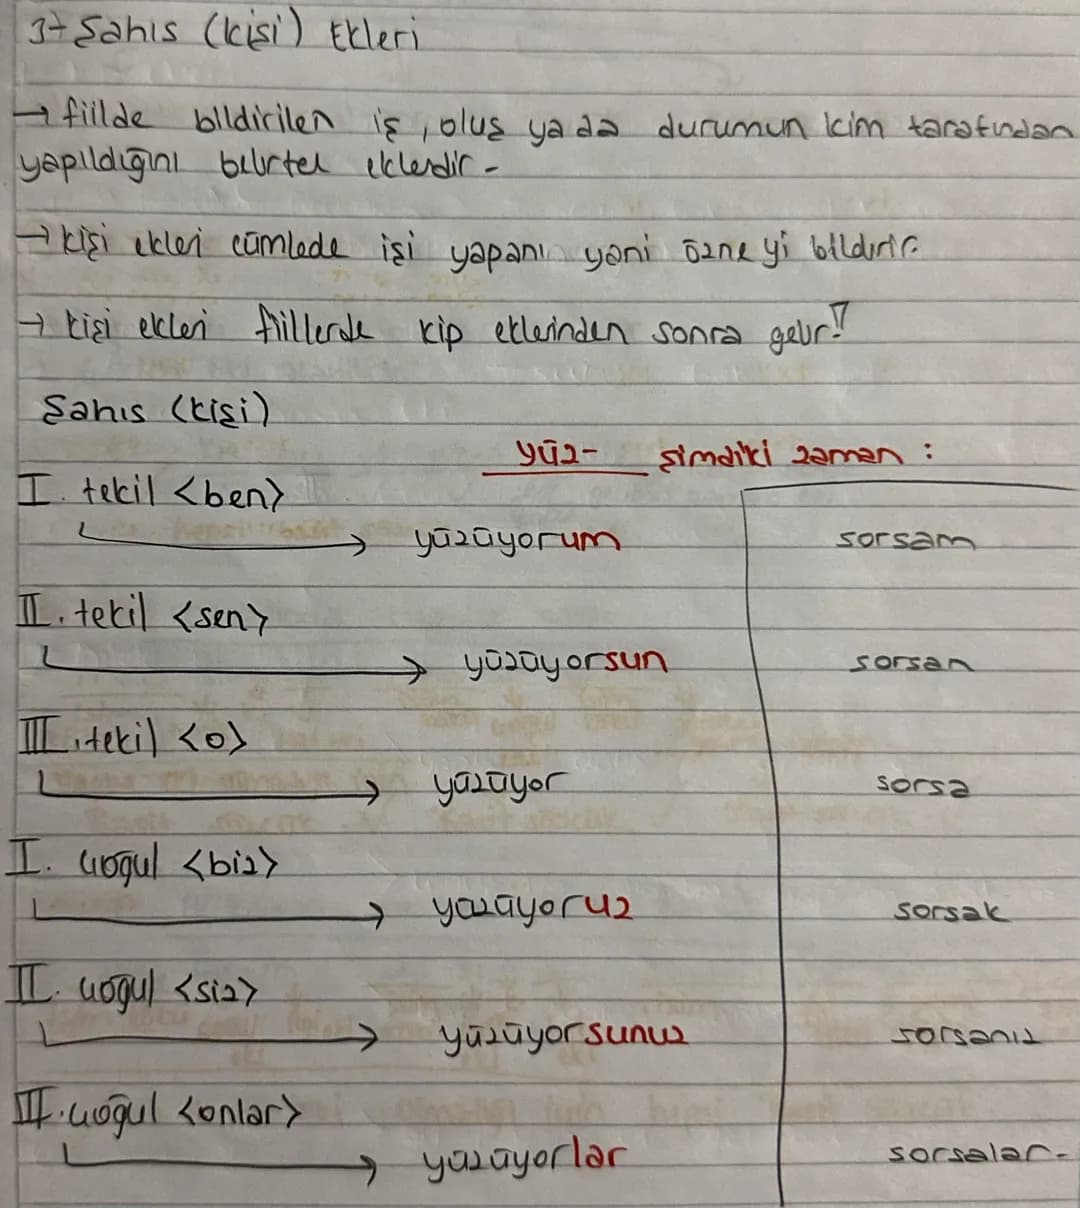 3- Şahıs (kişi) Ekleri
→ fiilde bildirilen iş, oluş ya da durumun kim tarafından
yapıldığını belirten eklerdir -
→ kişi ekleri cümlede işi yapanı yani özneyi bildirir.
→ kişi ekleri fiillerde kip eklerinden sonra gelir!
Şahıs (kişi)
yüz- şimdiki zaman :
I. tekil <ben>
→ yüzüyorum sorsam
II. tekil <sen>
→ yüzüyorsun sorsan
III. tekil <o>
→ yüzüyor sorsa
I. çoğul <biz>
→ yüzüyoruz sorsak
II. çoğul <siz>
→ yüzüyorsunuz sorsanız
III. çoğul <onlar>
→ yüzüyorlar sorsalar -